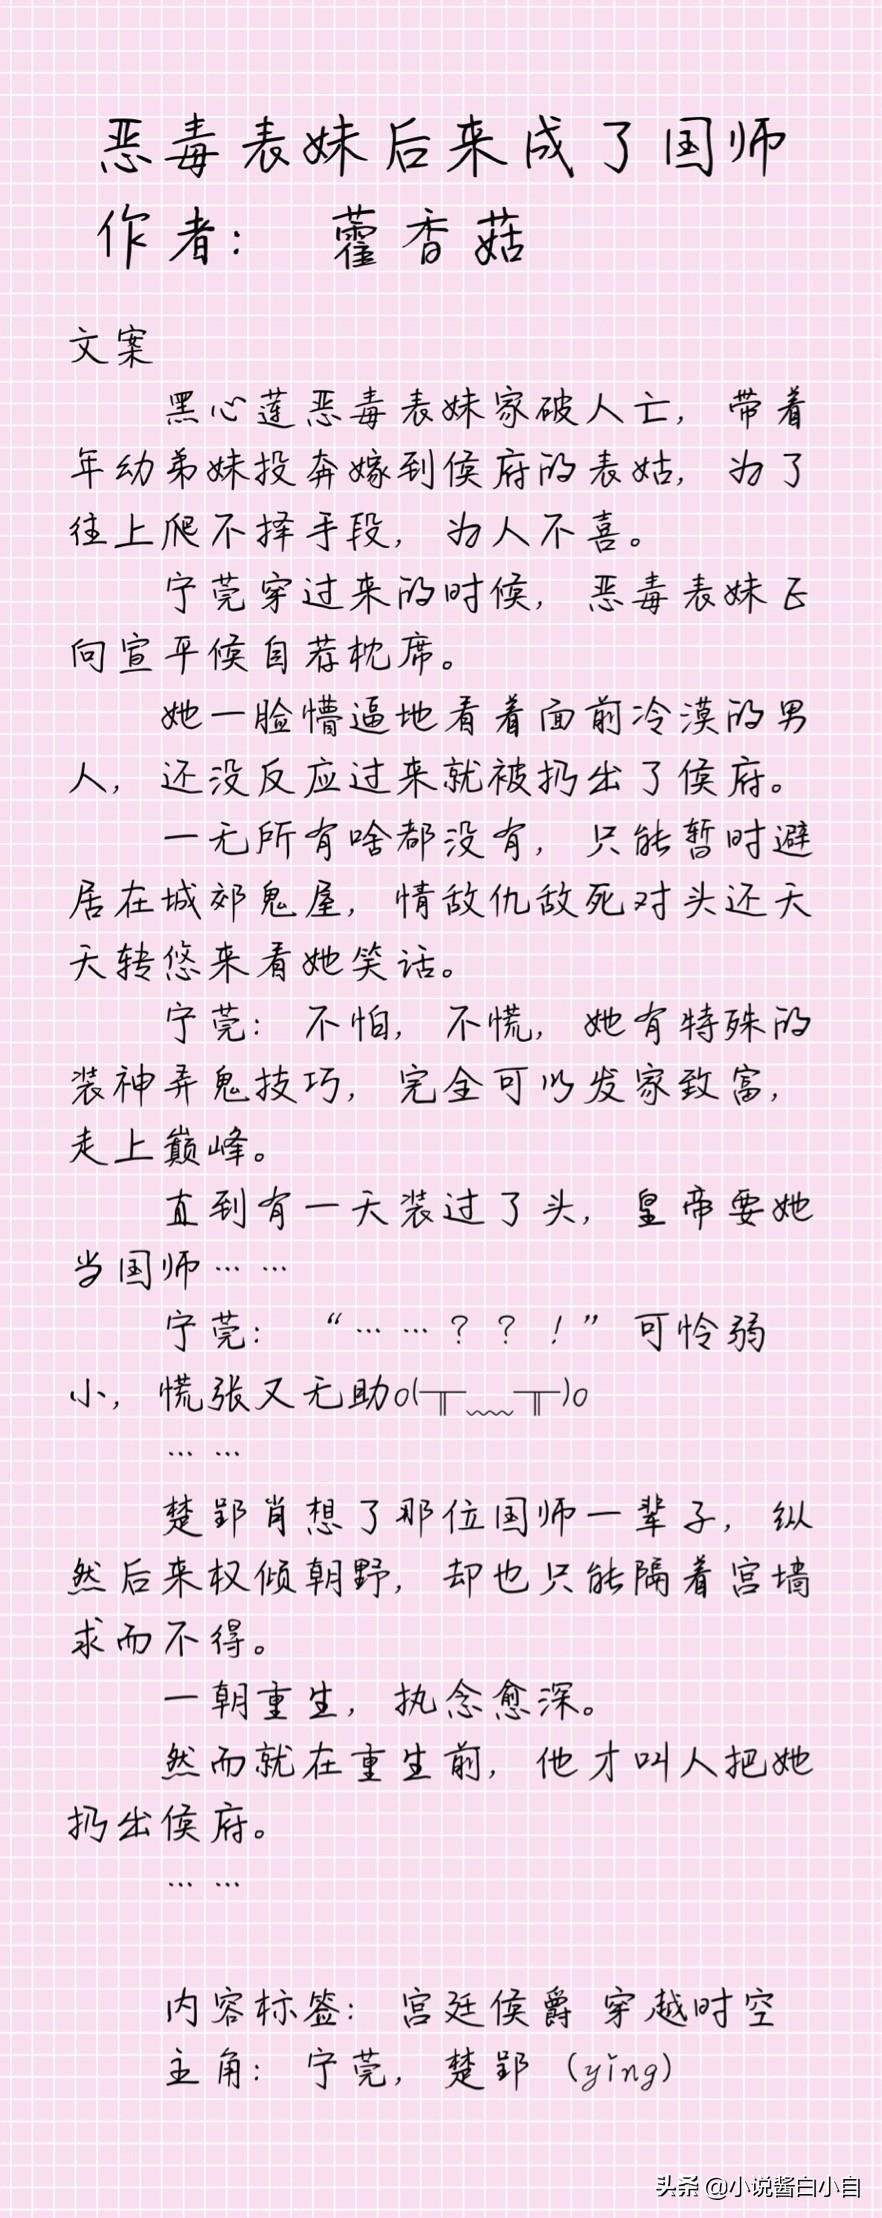 恶毒表妹后来成了国师
作者： 藿香菇
文案
黑心莲恶毒表妹家破人亡，带着
年幼弟妹投奔嫁到侯府的表姑，为了
往上爬不择手段，为人不喜。
宁莞穿过来的时候，恶毒表妹正
向宣平候自荐枕席。
她一脸懵逼地看着面前冷漠的男
人，还没反应过来就被扔出了侯府。
一无所有啥都没有，只能暂时避
居在城郊鬼屋，情敌仇敌死对头还天
天转悠来看她笑话。
宁莞：不怕，不慌，她有特殊的
装神弄鬼技巧，完全可以发家致富，
走上巅峰。
直到有一天装过了头，皇帝要她
当国师……
宁莞：“……？？！”可怜弱
小，慌张又无助o(╥﹏╥)o
……
楚郢肖想了那位国师一辈子，纵
然后来权倾朝野，却也只能隔着宫墙
求而不得。
一朝重生，执念愈深。
然而就在重生前，他才叫人把她
扔出侯府。
……
内容标签：宫廷侯爵 穿越时空
主角：宁莞，楚郢（yǐng）
头条 @小说酱白小白